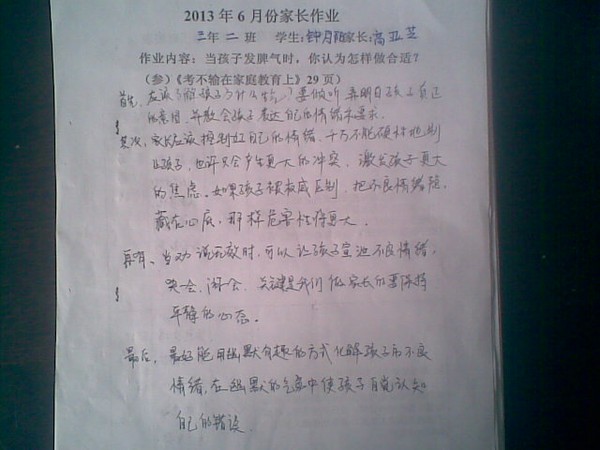 2013年6月份家长作业
三年二班 学生:钟月阳家长:高亚芝
作业内容:当孩子发脾气时,你认为怎样做合适?
(参)《考不输在家庭教育上》29页)
首先,应该了解孩子为什么 ?要倾听 弄明白孩子真正
的意图,并教会孩子表达自己的情绪和要求。
其次,家长应该控制好自己的情绪,千万不能硬材控制
孩子,也许只会产生更大的冲突,激发孩子更大
的焦虑。如果孩子被权威压制,把不良情绪隐
藏在心底,那样危害性将更大。
再有、当劝说无效时,可以让孩子宣泄不良情绪,
哭一会,闹一会,关键是我们做家长的要保持
平静的心态。
最后,最好能用幽默有趣的方式化解孩子的不良
情绪,在幽默的气氛中使孩子自觉认知
自己的错误